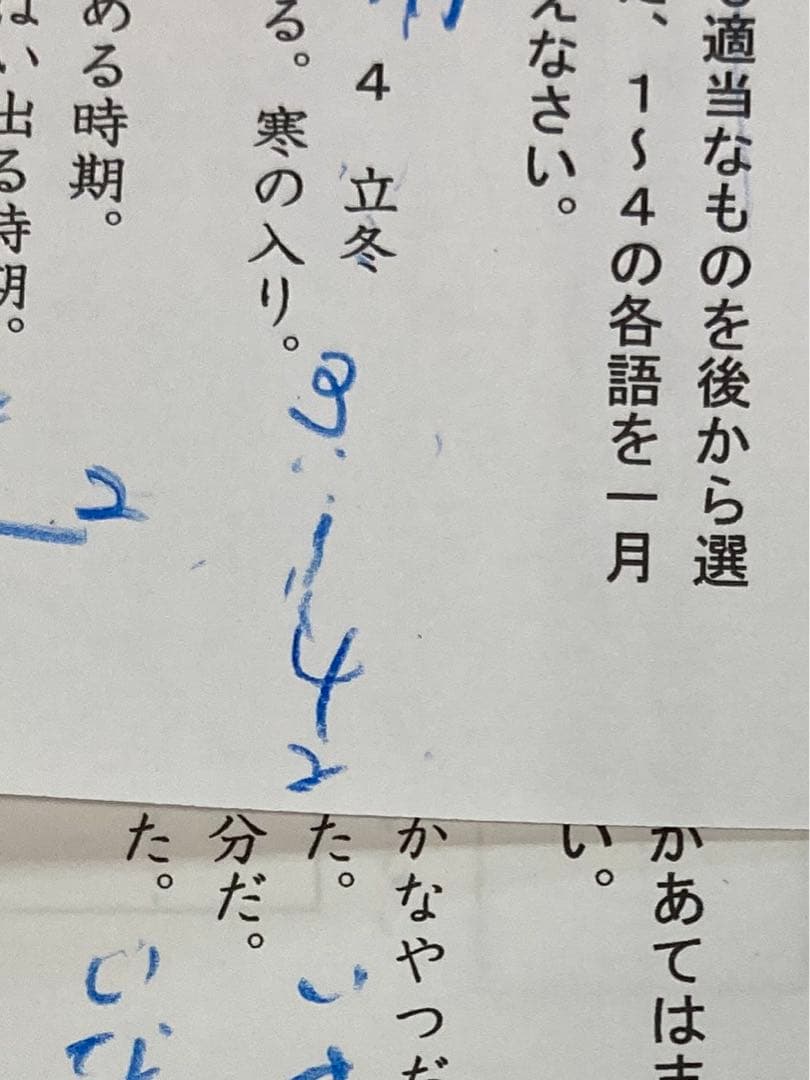 適当なものを後から選
、１〜４の各語を一月
えなさい。
４　立冬
る。寒の入り。
３
１
４
２
ある時期。
２
い出る時期。
があては
い。
かなやつだ
た。
い
分だ。
た。
い